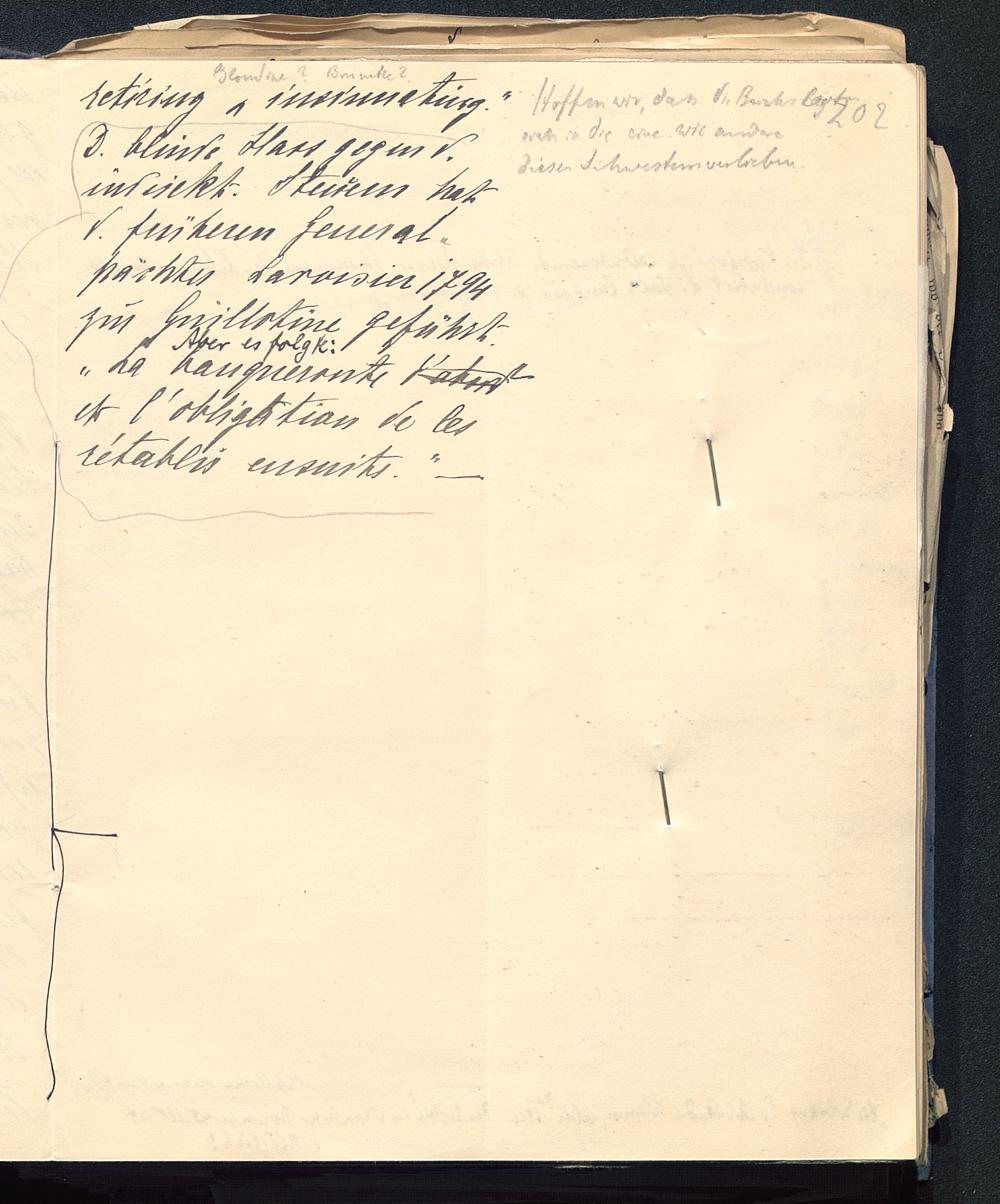 Blondine? Brünette?
retiring, insinuating."
D. blinde Hass gegen d.
indirekt. Steuern hat
d. früheren General-
pächter Lavoisier 1794
zur Guillotine geführt.
Aber es folgt:
„La banqueroute d'abord
et l'obligation de les
rétablir ensuite." —
Hoffen wir, dass d. 202
sich in die eine wie andere
dieser Schwestern verlieben.